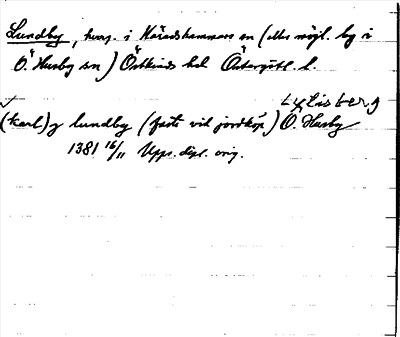 Lundby, herg. i Häradshammars sn (eller möjl. by i
Ö. Husby sn) Östkinds hd Östergötl. l.
Lytisberg
(karl) y lundby (faste vid jordköp) Ö. Husby
1381 16/11 Upps. dipl. orig.